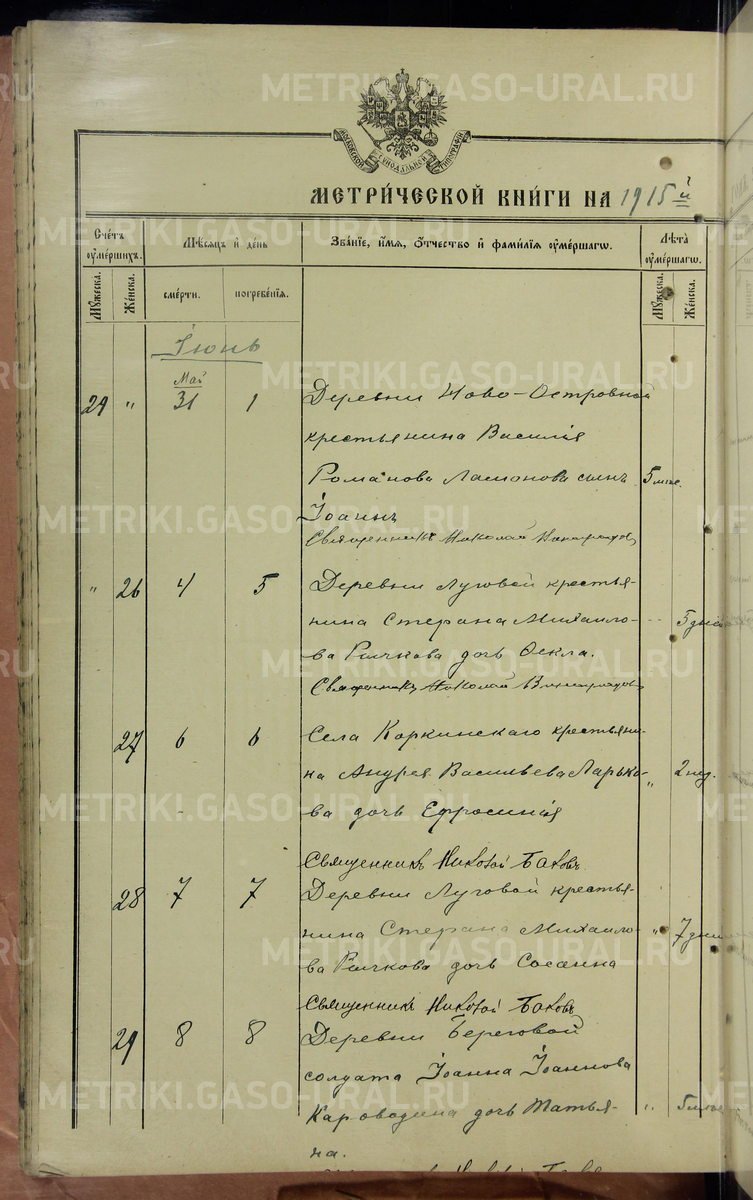 METRIKI.GASO-URAL.RU
МОСКОВСКОЙ СѴНОДАЛЬНОЙ ТИПОГРАФІИ
МЕТРИ́ЧЕСКОЙ КНИ́ГИ НА 1915 й
Сче́тъ ᲂу҆ме́ршихъ.
Мѣ́сяцъ и҆ де́нь
Зва́нїе, и҆́мя, ѻ҆́тчество и҆ фами́лїя ᲂу҆ме́ршагѡ.
Лѣ́та ᲂу҆ме́ршагѡ.
Мꙋ́жеска.
Же́нска.
сме́рти.
погребе́нїя.
Мꙋ́жеска.
Же́нска.
Іюнь
Май
29 " 31 1 Деревни Ново-Островной
крестьянина Василія
Романова сынъ 5 мѣс.
Іоаннъ
Священникъ Николай
" 26 4 5 Деревни Луговой крестья-
нина Стефана Михаило- 5 дней
ва Рычкова дочь
Священникъ Николай
27 6 6 Села Коркинскаго крестьяни-
на Андрея Васильева Ларько- " 2 нед.
ва дочь Ефросинія
Священникъ Николай Баковъ
28 7 7 Деревни Луговой крестья-
нина Стефана Михаило- " 7 дни
ва Рычкова дочь Сосанна
Священникъ Николай Баковъ
29 8 8 Деревни Береговой
солдата Іоанна Іоаннова
дочь Татья- " 5 мѣс.
на.